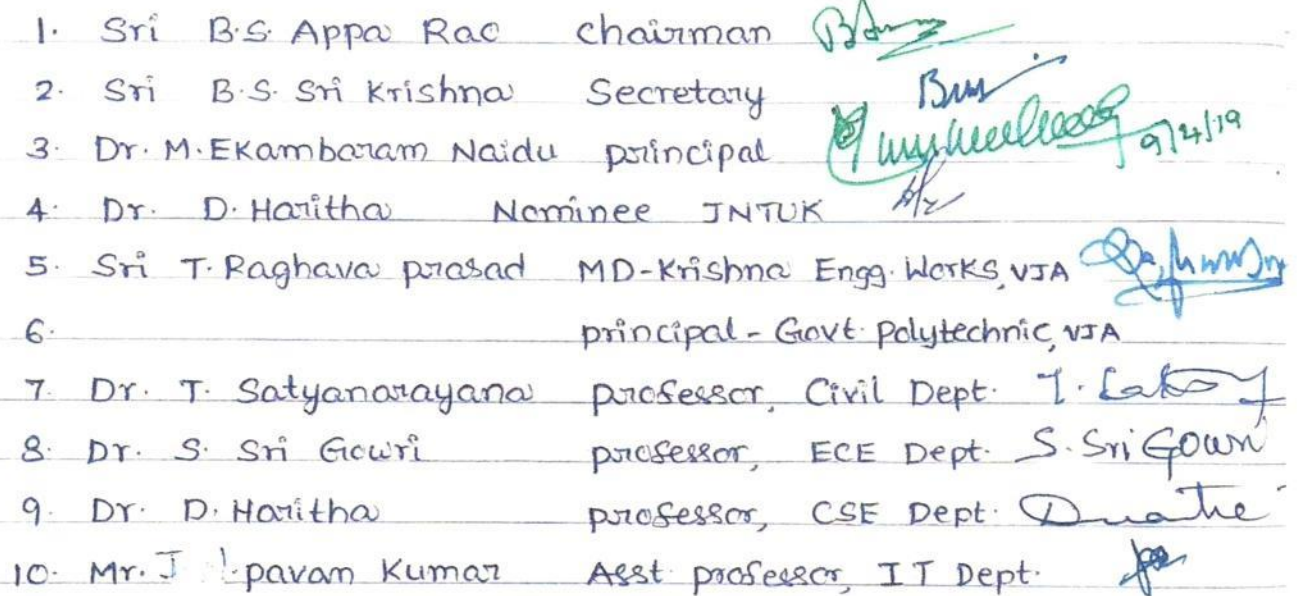 1. Sri B.S. Appa Rao chairman
2. Sri B.S. Sri Krishna Secretary
3. Dr. M. Ekambaram Naidu principal 9/4/19
4. Dr. D. Haritha Nominee JNTUK
5. Sri T. Raghava prasad MD-Krishna Engg. Works, VJA
6. principal - Govt. Polytechnic, VJA
7. Dr. T. Satyanarayana professor, Civil Dept.
8. Dr. S. Sri Gowri professor, ECE Dept. S. Sri Gowri
9. Dr. D. Haritha professor, CSE Dept.
10. Mr. J pavan Kumar Asst professor, IT Dept.